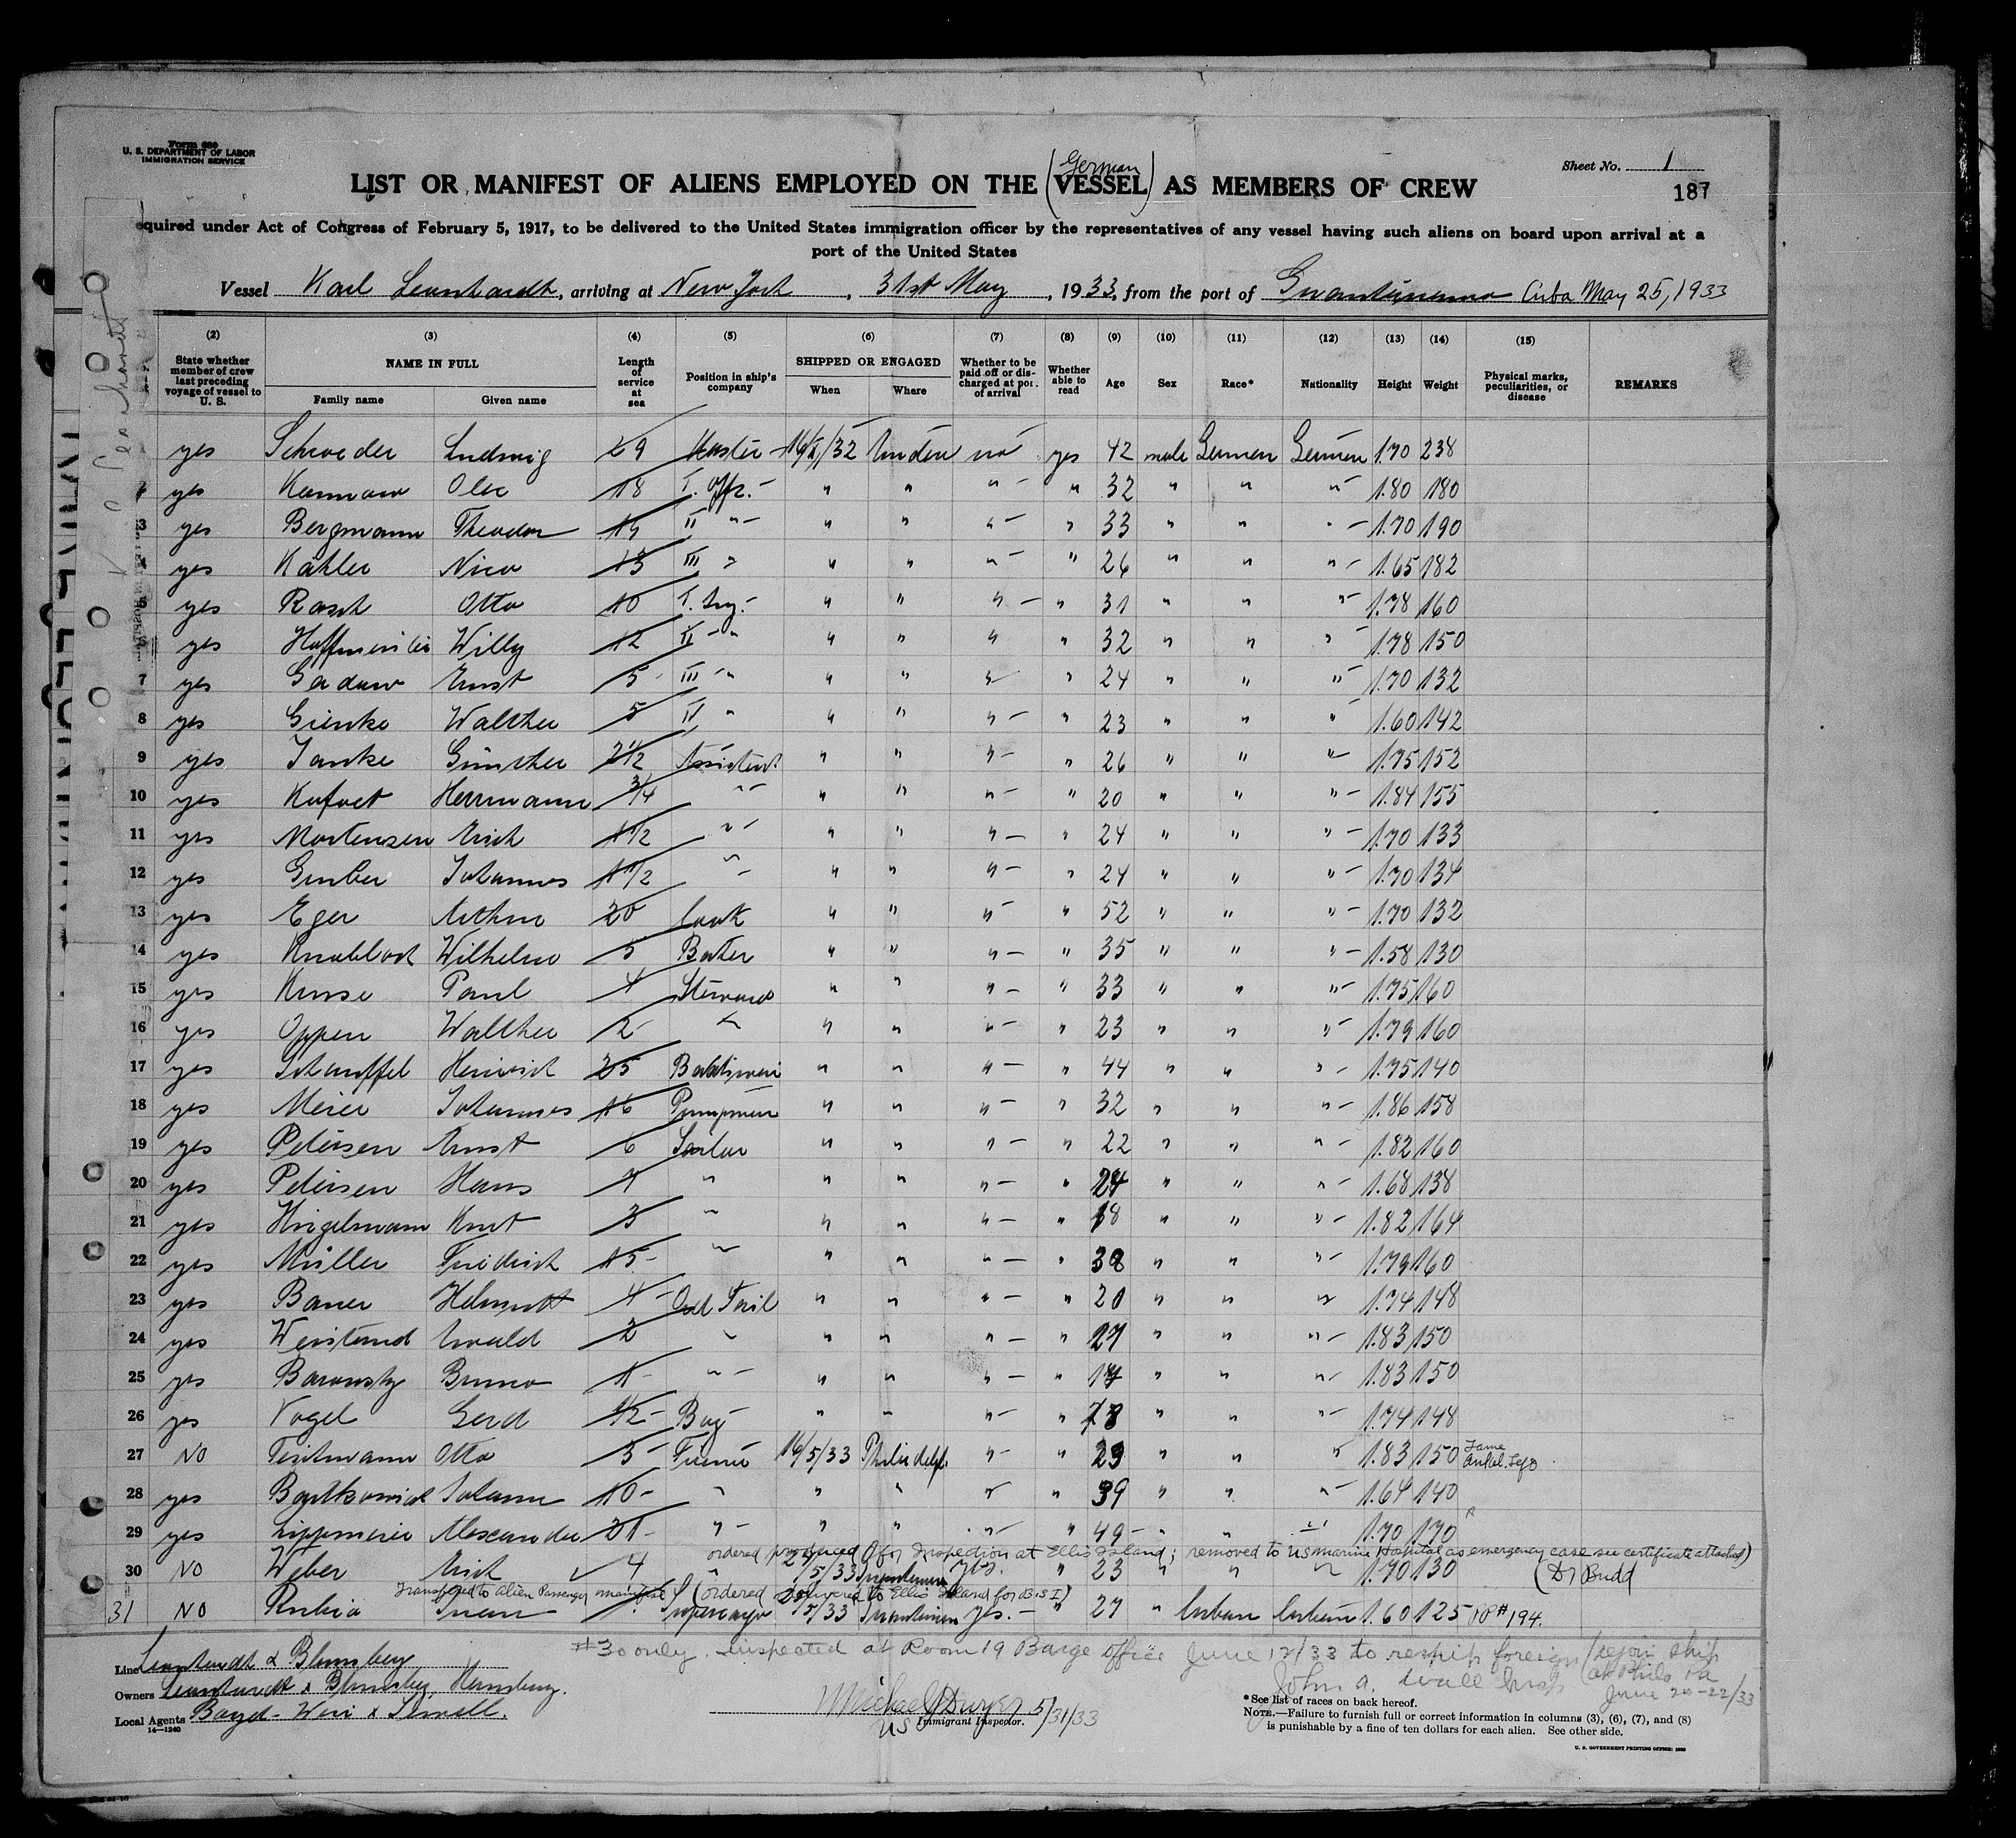 Form 680
U. S. DEPARTMENT OF LABOR
IMMIGRATION SERVICE
Sheet No. 1
187
German
LIST OR MANIFEST OF ALIENS EMPLOYED ON THE (VESSEL) AS MEMBERS OF CREW
equired under Act of Congress of February 5, 1917, to be delivered to the United States immigration officer by the representatives of any vessel having such aliens on board upon arrival at a
port of the United States
Vessel Karl Leonhardt, arriving at New York, 31st May, 1933, from the port of Guantanamo Cuba May 25, 1933
(2) State whether member of crew last preceding voyage of vessel to U. S.
(3) NAME IN FULL Family name Given name
(4) Length of service at sea
(5) Position in ship's company
(6) SHIPPED OR ENGAGED When Where
(7) Whether to be paid off or discharged at port of arrival
(8) Whether able to read
(9) Age
(10) Sex
(11) Race*
(12) Nationality
(13) Height
(14) Weight
(15) Physical marks, peculiarities, or disease
REMARKS
yes Schroeder Ludwig 29 Master /32 Emden no yes 42 male German German 1.70 238
yes 18 I. Offz. " " " " 32 " " " 1.80 180
3 yes Bergmann Theodor II " " " " " 33 " " " 1.70 190
4 yes Kähler Nico 13 III " " " " " 26 " " " 1.65 182
5 yes Rasch Otto 10 I. Ing. " " " " 31 " " " 1.78 160
yes Willy 12 II " " " " " 32 " " " 1.78 150
7 yes Gadow Ernst 5 III " " " " " 24 " " " 1.70 132
8 yes Grienke Walther 5 IV " " " " " 23 " " " 1.60 142
9 yes Janke Günther 2 1/2 Assistent " " " " 26 " " " 1.75 152
10 yes Herrmann 3/4 " " " " " 20 " " " 1.84 155
11 yes Mortensen Erich 1 1/2 " " " " " 24 " " " 1.70 133
12 yes Gruber Johannes 1 1/2 " " " " " 24 " " " 1.70 134
13 yes Eger Arthur 20 Cook " " " " 52 " " " 1.70 132
14 yes Knobloch Wilhelm 5 Baker " " " " 35 " " " 1.58 130
15 yes Kruse Paul 4 Steward " " " " 33 " " " 1.75 160
16 yes Oppen Walther 2 " " " " " 23 " " " 1.79 160
17 yes Schauffel Heinrich 25 " " " " 44 " " " 1.75 140
18 yes Meier Johannes 16 Pumpman " " " " 32 " " " 1.86 158
19 yes Petersen Ernst 6 Sailor " " " " 22 " " " 1.82 160
20 yes Petersen Hans 4 " " " " " 24 " " " 1.68 138
21 yes Kurt 3 " " " " " 18 " " " 1.82 164
22 yes Müller Friedrich 15 " " " " " 38 " " " 1.79 160
23 yes Bauer Helmuth 4 Ord Sail " " " " 20 " " " 1.74 148
24 yes Ewald 2 " " " " " 27 " " " 1.83 150
25 yes Baronsky Bruno 1 " " " " " " " " 1.83 150
26 yes Vogel Gerd 1/2 Boy " " " " " " " 1.74 148
27 NO Teichmann Otto 5 16/5/33 Philadelp. " " 29 " " " 1.83 150 Lame
28 yes Johann 10 " " " " " 39 " " " 1.64 140
29 yes Lippmeier Alexander 21 " " " " " 49 " " " 1.70 170
ordered produced for Inspection at Ellis Island; removed to US Marine Hospital as emergency case see certificate attached)
30 NO Weber Erich 4 " /5/33 Guantanamo yes. " 23 " " " 1.70 130 (Dr Budd
Transferred to Alien Passenger manifest (ordered delivered to Ellis Island for B.S.I)
31 NO Rubio Juan Supercargo /5/33 Guantanamo yes. " 27 " Cuban Cuban 1.60 125 PP# 194.
#30 only. inspected at Room 19 Barge Office June 12/33 to reship foreign / rejoin ship
at Phila Pa
June 20-22/33
John A. Insp
Line Leonhardt & Blumberg
Owners Leonhardt & Blumberg, Hamburg.
Local Agents Boyd-Weir & Sewell.
14—1240
Michael J Dwyer 5/31/33
US Immigrant Inspector.
*See list of races on back hereof.
NOTE.—Failure to furnish full or correct information in columns (3), (6), (7), and (8)
is punishable by a fine of ten dollars for each alien. See other side.
U. S. GOVERNMENT PRINTING OFFICE: 1930